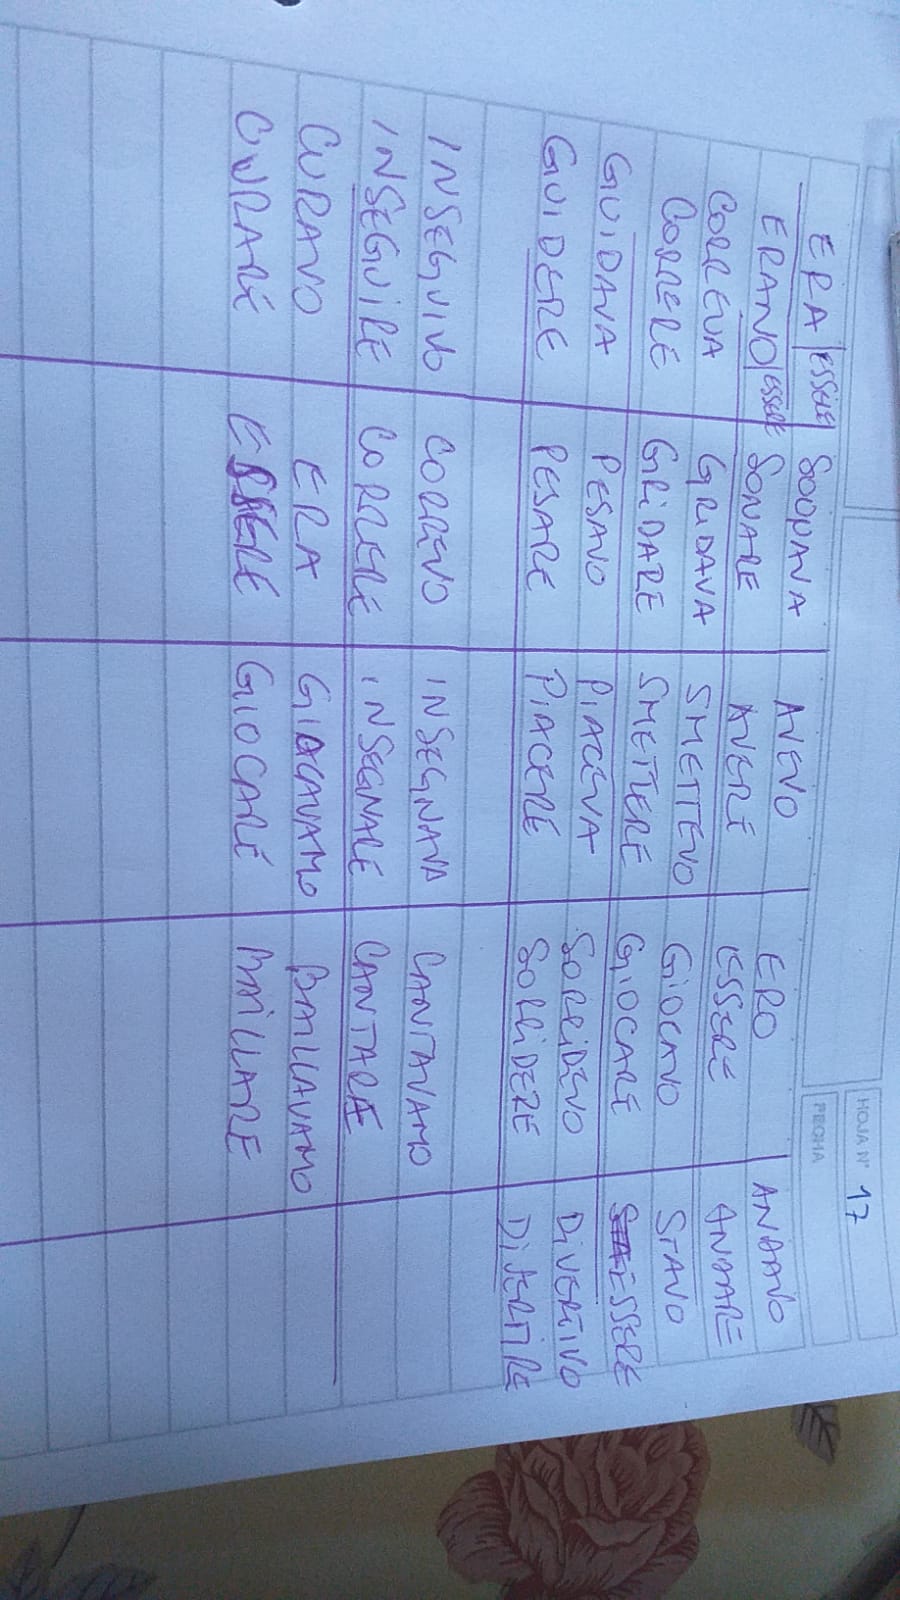 HOJA N° 17
FECHA
ERA ESSERE SOONAVA AVEVO ERO ANDAVO
ERANO ESSERE SONARE AVERE ESSERE ANDARE
CORREVA GRIDAVA SMETTEVO GIOCAVO STAVO
CORRERE GRIDARE SMETTERE GIOCARE ESSERE
GUIDAVA PESAVO PIACEVA SORRIDEVO DIVERTIVO
GUIDERE PESARE PIACERE SORRIDERE DIVERTIRE
INSEGUIVO CORREVO INSEGNAVA CANTAVAMO
INSEGUIRE CORRERE INSEGNARE CANTARE
CURAVO ERA GIOCAVAMO BAILLAVAMO
CURARE ESSERE GIOCARE BAILLARE